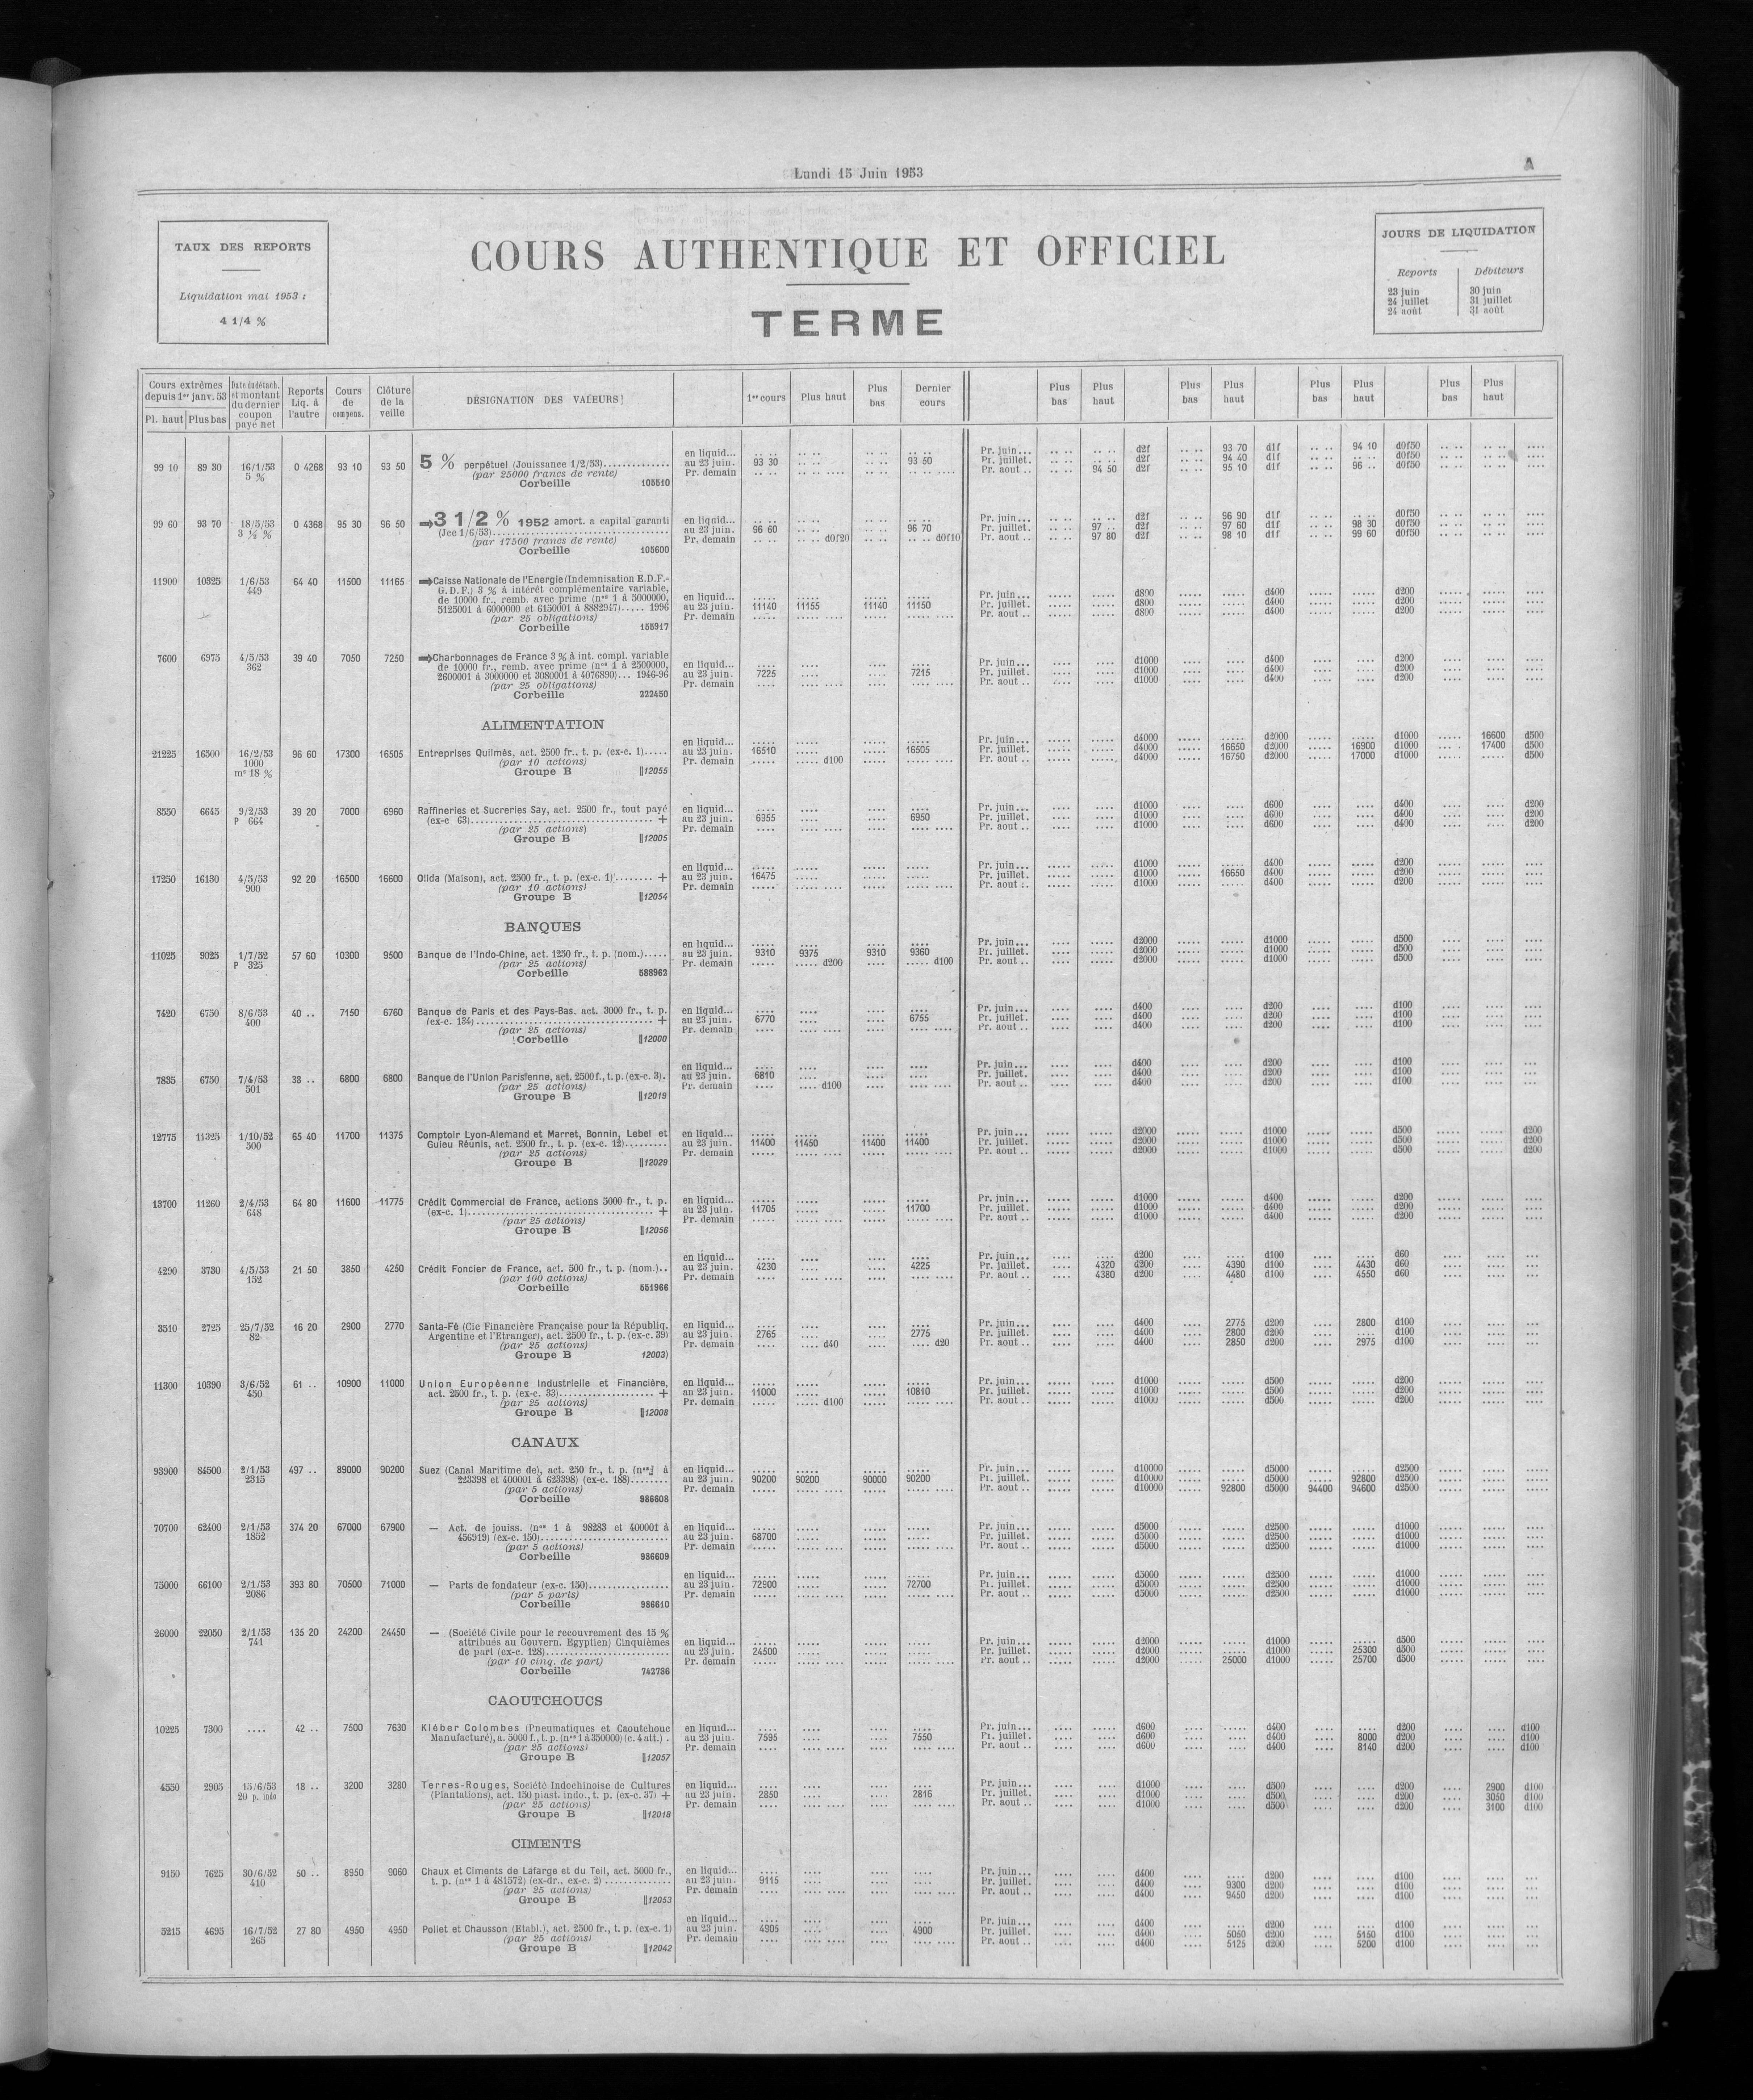 Lundi 15 Juin 1953
A
TAUX DES REPORTS
Liquidation mai 1953 :
4 1/4 %
COURS AUTHENTIQUE ET OFFICIEL
TERME
JOURS DE LIQUIDATION
Reports Débiteurs
23 juin 30 juin
24 juillet 31 juillet
24 août 31 août
Cours extrêmes depuis 1er janv. 53 Pl. haut Plus bas
Date du détach. et montant du dernier coupon payé net
Reports Liq. à l'autre
Cours de compens.
Clôture de la veille
DÉSIGNATION DES VALEURS
1er cours Plus haut Plus bas Dernier cours
Plus bas Plus haut Plus bas Plus haut Plus bas Plus haut Plus bas Plus haut
en liquid... .. .. .. .. .. .. .. .. Pr. juin... .. .. .. .. d2f .. .. 93 70 d1f .. .. 94 10 d0f50 .. .. .. .. ....
99 10 89 30 16/1/53 0 4268 93 10 93 50 5 % perpétuel (Jouissance 1/2/53)............. au 23 juin. 93 30 .. .. .. .. 93 50 Pr. juillet. .. .. .. .. d2f .. .. 94 40 d1f .. .. .. .. d0f50 .. .. .. .. ....
5 % (par 25000 francs de rente) Pr. demain .. .. .. .. .... .. .. .. .. .... Pr. aout .. .. .. 94 50 d2f .. .. 95 10 d1f .. .. 96 .. d0f50 .. .. .. .. ....
Corbeille 105510
99 60 93 70 18/5/53 0 4368 95 30 96 50 3 1/2 % 1952 amort. a capital garanti en liquid... .. .. .. .. .. .. .. .. Pr. juin... .. .. .. .. d2f .. .. 96 90 d1f .. .. .. .. d0f50 .. .. .. .. ....
3 ½ % (Jce 1/6/53)................................... au 23 juin. 96 60 .. .. .. .. 96 70 Pr. juillet. .. .. 97 .. d2f .. .. 97 60 d1f .. .. 98 30 d0f50 .. .. .. .. ....
(par 17500 francs de rente) Pr. demain .. .. .. .. d0f20 .. .. .. .. d0f10 Pr. aout .. .. .. 97 80 d2f .. .. 98 10 d1f .. .. 99 60 d0f50 .. .. .. .. ....
Corbeille 105600
11900 10325 1/6/53 64 40 11500 11165 Caisse Nationale de l'Energie (Indemnisation E.D.F.-
449 G.D.F.) 3 % à intérêt complémentaire variable,
de 10000 fr., remb. avec prime (nos 1 à 5000000, en liquid... ..... ..... ..... ..... Pr. juin... ..... ..... d800 ..... ..... d400 ..... ..... d200 ..... ..... ....
5125001 à 6000000 et 6150001 à 8882947)..... 1996 au 23 juin. 11140 11155 11140 11150 Pr. juillet. ..... ..... d800 ..... ..... d400 ..... ..... d200 ..... ..... ....
(par 25 obligations) Pr. demain ..... ..... .... ..... ..... .... Pr. aout .. ..... ..... d800 ..... ..... d400 ..... ..... d200 ..... ..... ....
Corbeille 155917
7600 6975 4/5/53 39 40 7050 7250 Charbonnages de France 3 % à int. compl. variable
362 de 10000 fr., remb. avec prime (nos 1 à 2500000, en liquid... .... .... .... .... Pr. juin... .... .... d1000 .... .... d400 .... .... d200 .... .... ....
2600001 à 3000000 et 3080001 à 4076890)... 1946-96 au 23 juin. 7225 .... .... 7215 Pr. juillet. .... .... d1000 .... .... d400 .... .... d200 .... .... ....
(par 25 obligations) Pr. demain .... .... .... .... .... .... Pr. aout .. .... .... d1000 .... .... d400 .... .... d200 .... .... ....
Corbeille 222450
ALIMENTATION
en liquid... ..... ..... ..... ..... Pr. juin... ..... ..... d4000 ..... ..... d2000 ..... ..... d1000 ..... 16600 d500
21225 16500 16/2/53 96 60 17300 16505 Entreprises Quilmès, act. 2500 fr., t. p. (ex-c. 1)..... au 23 juin. 16510 ..... ..... 16505 Pr. juillet. ..... ..... d4000 ..... 16650 d2000 ..... 16900 d1000 ..... 17400 d500
1000 (par 10 actions) Pr. demain ..... ..... d100 ..... ..... .... Pr. aout .. ..... ..... d4000 ..... 16750 d2000 ..... 17000 d1000 ..... ..... d500
ms 18 % Groupe B ||12055
8550 6645 9/2/53 39 20 7000 6960 Raffineries et Sucreries Say, act. 2500 fr., tout payé en liquid... .... .... .... .... Pr. juin... .... .... d1000 .... .... d600 .... .... d400 .... .... d200
P 664 (ex-c 63)................................... + au 23 juin. 6955 .... .... 6950 Pr. juillet. .... .... d1000 .... .... d600 .... .... d400 .... .... d200
(par 25 actions) Pr. demain .... .... .... .... .... .... Pr. aout .. .... .... d1000 .... .... d600 .... .... d400 .... .... d200
Groupe B ||12005
en liquid... ..... ..... ..... ..... Pr. juin... ..... ..... d1000 ..... ..... d400 ..... ..... d200 ..... ..... ....
17250 16130 4/5/53 92 20 16500 16600 Olida (Maison), act. 2500 fr., t. p. (ex-c. 1)........ + au 23 juin. 16475 ..... ..... ..... Pr. juillet. ..... ..... d1000 ..... 16650 d400 ..... ..... d200 ..... ..... ....
900 (par 10 actions) Pr. demain ..... ..... .... ..... ..... .... Pr. aout .. ..... ..... d1000 ..... ..... d400 ..... ..... d200 ..... ..... ....
Groupe B ||12054
BANQUES
en liquid... ..... .... .... .... Pr. juin... .... ..... d2000 ..... ..... d1000 ..... ..... d500 .... .... ....
11025 9025 1/7/52 57 60 10300 9500 Banque de l'Indo-Chine, act. 1250 fr., t. p. (nom.)..... au 23 juin. 9310 9375 9310 9360 Pr. juillet. .... ..... d2000 ..... ..... d1000 ..... ..... d500 .... .... ....
P 325 (par 25 actions) Pr. demain ..... ..... d200 .... ..... d100 Pr. aout .. .... ..... d2000 ..... ..... d1000 ..... ..... d500 .... .... ....
Corbeille 588962
7420 6750 8/6/53 40 .. 7150 6760 Banque de Paris et des Pays-Bas. act. 3000 fr., t. p. en liquid... .... .... .... .... Pr. juin... .... .... d400 .... .... d200 .... .... d100 .... .... ....
400 (ex-c. 134)................................... + au 23 juin. 6770 .... .... 6755 Pr. juillet. .... .... d400 .... .... d200 .... .... d100 .... .... ....
(par 25 actions) Pr. demain .... .... .... .... .... .... Pr. aout .. .... .... d400 .... .... d200 .... .... d100 .... .... ....
Corbeille ||12000
en liquid... .... .... .... .... Pr. juin... .... .... d400 .... .... d200 .... .... d100 .... .... ...
7835 6750 7/4/53 38 .. 6800 6800 Banque de l'Union Parisienne, act. 2500 f., t. p. (ex-c. 3). au 23 juin. 6810 .... .... .... Pr. juillet. .... .... d400 .... .... d200 .... .... d100 .... .... ...
501 (par 25 actions) Pr. demain .... .... d100 .... .... .... Pr. aout .. .... .... d400 .... .... d200 .... .... d100 .... .... ...
Groupe B ||12019
12775 11325 1/10/52 65 40 11700 11375 Comptoir Lyon-Alemand et Marret, Bonnin, Lebel et en liquid... ..... ..... ..... ..... Pr. juin... ..... ..... d2000 ..... ..... d1000 ..... ..... d500 ..... ..... d200
500 Guieu Réunis, act. 2500 fr., t. p. (ex-c. 12)......... au 23 juin. 11400 11450 11400 11400 Pr. juillet. ..... ..... d2000 ..... ..... d1000 ..... ..... d500 ..... ..... d200
(par 25 actions) Pr. demain ..... ..... .... ..... ..... .... Pr. aout .. ..... ..... d2000 ..... ..... d1000 ..... ..... d500 ..... ..... d200
Groupe B ||12029
13700 11260 2/4/53 64 80 11600 11775 Crédit Commercial de France, actions 5000 fr., t. p. en liquid... ..... ..... ..... ..... Pr. juin... ..... ..... d1000 ..... ..... d400 ..... ..... d200 ..... ..... ....
648 (ex-c. 1)................................... + au 23 juin. 11705 ..... ..... 11700 Pr. juillet. ..... ..... d1000 ..... ..... d400 ..... ..... d200 ..... ..... ....
(par 25 actions) Pr. demain ..... ..... .... ..... ..... .... Pr. aout .. ..... ..... d1000 ..... ..... d400 ..... ..... d200 ..... ..... ....
Groupe B ||12056
en liquid... .... .... .... .... Pr. juin... .... .... d200 .... .... d100 .... .... d60 .... .... ....
4290 3730 4/5/53 21 50 3850 4250 Crédit Foncier de France, act. 500 fr., t. p. (nom.).. au 23 juin. 4230 .... .... 4225 Pr. juillet. .... 4320 d200 .... 4390 d100 .... 4430 d60 .... .... ....
152 (par 100 actions) Pr. demain .... .... .... .... .... .... Pr. aout .. .... 4380 d200 .... 4480 d100 .... 4550 d60 .... .... ....
Corbeille 551966
3510 2725 25/7/52 16 20 2900 2770 Santa-Fé (Cie Financière Française pour la Républiq. en liquid... .... .... .... .... Pr. juin... .... .... d400 .... 2775 d200 .... 2800 d100 .... .... ...
82 Argentine et l'Etranger), act. 2500 fr., t. p. (ex-c. 39) au 23 juin. 2765 .... .... 2775 Pr. juillet. .... .... d400 .... 2800 d200 .... .... d100 .... .... ...
(par 25 actions) Pr. demain .... .... d40 .... .... d20 Pr. aout .. .... .... d400 .... 2850 d200 .... 2975 d100 .... .... ...
Groupe B 12003)
11300 10390 3/6/52 61 .. 10900 11000 Union Européenne Industrielle et Financière, en liquid... ..... ..... ..... ..... Pr. juin... ..... ..... d1000 ..... ..... d500 ..... ..... d200 ..... ..... ....
450 act. 2500 fr., t. p. (ex-c. 33)................... + au 23 juin. 11000 ..... ..... 10810 Pr. juillet. ..... ..... d1000 ..... ..... d500 ..... ..... d200 ..... ..... ....
(par 25 actions) Pr. demain ..... ..... d100 ..... ..... .... Pr. aout .. ..... ..... d1000 ..... ..... d500 ..... ..... d200 ..... ..... ....
Groupe B ||12008
CANAUX
93900 84500 2/1/53 497 .. 89000 90200 Suez (Canal Maritime de), act. 250 fr., t. p. (nos à en liquid... ..... ..... ..... ..... Pr. juin... ..... ..... d10000 ..... ..... d5000 ..... ..... d2500 ..... ..... .....
2315 223398 et 400001 à 623398) (ex-c. 188)........ au 23 juin. 90200 90200 90000 90200 Pr. juillet. ..... ..... d10000 ..... ..... d5000 ..... 92800 d2500 ..... ..... .....
(par 5 actions) Pr. demain ..... ..... .... ..... ..... .... Pr. aout .. ..... ..... d10000 ..... 92800 d5000 94400 94600 d2500 ..... ..... .....
Corbeille 986608
70700 62400 2/1/53 374 20 67000 67900 — Act. de jouiss. (nos 1 à 98283 et 400001 à en liquid... ..... ..... ..... ..... Pr. juin... ..... ..... d5000 ..... ..... d2500 ..... ..... d1000 ..... ..... ....
1852 456919) (ex-c. 150)................... au 23 juin. 68700 ..... ..... ..... Pr. juillet. ..... ..... d5000 ..... ..... d2500 ..... ..... d1000 ..... ..... ....
(par 5 actions) Pr. demain ..... ..... .... ..... ..... .... Pr. aout .. ..... ..... d5000 ..... ..... d2500 ..... ..... d1000 ..... ..... ....
Corbeille 986609
en liquid... ..... ..... ..... ..... Pr. juin... ..... ..... d5000 ..... ..... d2500 ..... ..... d1000 ..... ..... ....
75000 66100 2/1/53 393 80 70500 71000 — Parts de fondateur (ex-c. 150)................ au 23 juin. 72900 ..... ..... 72700 Pr. juillet. ..... ..... d5000 ..... ..... d2500 ..... ..... d1000 ..... ..... ....
2086 (par 5 parts) Pr. demain ..... ..... .... ..... ..... .... Pr. aout .. ..... ..... d5000 ..... ..... d2500 ..... ..... d1000 ..... ..... ....
Corbeille 986610
26000 22050 2/1/53 135 20 24200 24450 — (Société Civile pour le recouvrement des 15 %
741 attribués au Gouvern. Egyptien) Cinquièmes en liquid... ..... ..... ..... ..... Pr. juin... ..... ..... d2000 ..... ..... d1000 ..... ..... d500 ..... ..... ....
de part (ex-c. 128)......................... au 23 juin. 24500 ..... ..... ..... Pr. juillet. ..... ..... d2000 ..... ..... d1000 ..... 25300 d500 ..... ..... ....
(par 10 cinq. de part) Pr. demain ..... ..... .... ..... ..... .... Pr. aout .. ..... ..... d2000 ..... 25000 d1000 ..... 25700 d500 ..... ..... ....
Corbeille 742786
CAOUTCHOUCS
10225 7300 .... 42 .. 7500 7630 Kléber Colombes (Pneumatiques et Caoutchouc en liquid... .... .... .... .... Pr. juin... .... .... d600 .... ..... d400 .... .... d200 .... .... d100
Manufacturé), a. 5000 f., t. p. (nos 1 à 350000) (c. 4 att.) . au 23 juin. 7595 .... .... 7550 Pr. juillet. .... .... d600 .... .... d400 .... 8000 d200 .... .... d100
(par 25 actions) Pr. demain .... .... .... .... .... .... Pr. aout .. .... .... d600 .... .... d400 .... 8140 d200 .... .... d100
Groupe B ||12057
4550 2905 15/6/53 18 .. 3200 3280 Terres-Rouges, Société Indochinoise de Cultures en liquid... .... .... .... .... Pr. juin... .... .... d1000 .... .... d500 .... .... d200 .... 2900 d100
20 p. indo (Plantations), act. 150 piast. indo., t. p. (ex-c. 37) + au 23 juin. 2850 .... .... 2816 Pr. juillet. .... .... d1000 .... .... d500 .... .... d200 .... 3050 d100
(par 25 actions) Pr. demain .... .... .... .... .... .... Pr. aout .. .... .... d1000 .... .... d500 .... .... d200 .... 3100 d100
Groupe B ||12018
CIMENTS
9150 7625 30/6/52 50 .. 8950 9060 Chaux et Ciments de Lafarge et du Teil, act. 5000 fr., en liquid... .... .... .... .... Pr. juin... .... .... d400 .... .... d200 .... .... d100 .... .... ...
410 t. p. (nos 1 à 481572) (ex-dr., ex-c. 2) .............. au 23 juin. 9115 .... .... .... Pr. juillet. .... .... d400 .... 9300 d200 .... .... d100 .... .... ...
(par 25 actions) Pr. demain .... .... .... .... .... .... Pr. aout .. .... .... d400 .... 9450 d200 .... .... d100 .... .... ...
Groupe B ||12053
en liquid... .... .... .... .... Pr. juin... .... .... d400 .... .... d200 .... .... d100 .... .... ...
5215 4695 16/7/52 27 80 4950 4950 Poliet et Chausson (Etabl.), act. 2500 fr., t. p. (ex-c. 1) au 23 juin. 4905 .... .... 4900 Pr. juillet. .... .... d400 .... 5050 d200 .... 5150 d100 .... .... ...
265 (par 25 actions) Pr. demain .... .... .... .... .... .... Pr. aout .. .... .... d400 .... 5125 d200 .... 5200 d100 .... .... ...
Groupe B ||12042